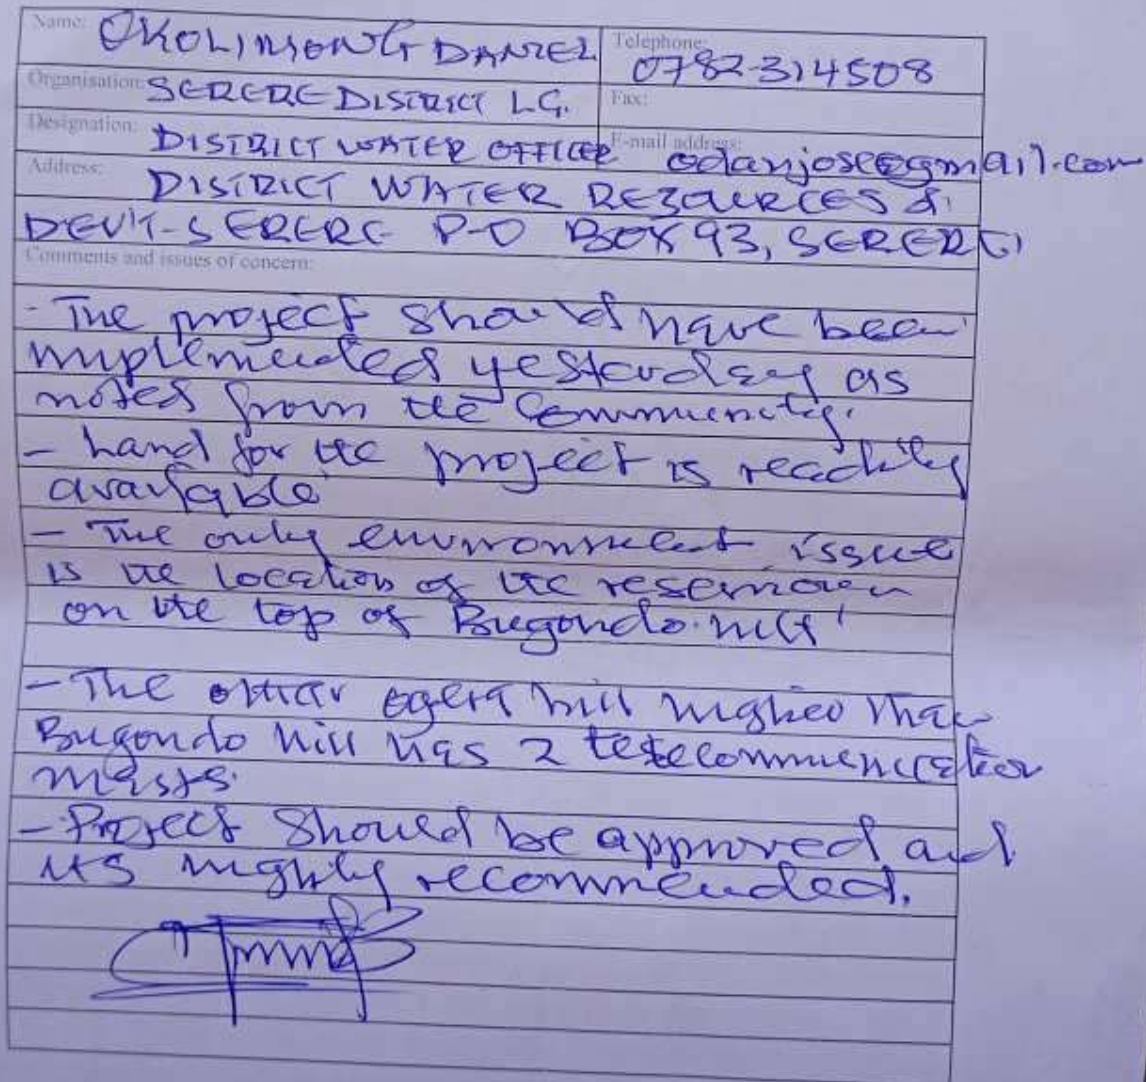 Name: OKOLIMONG DANIEL
Telephone: 0782-314508
Organisation: SERERE DISTRICT LG.
Fax:
Designation: DISTRICT WATER OFFICER
E-mail address: odanjose@gmail.com
Address: DISTRICT WATER RESOURCES &
DEV'T-SERERE P-O BOX 93, SERERE
Comments and issues of concern:
- The project should have been
implemented yesterday as
noted from the Community.
- Land for the project is readily
available
- The only environment issue
is the location of the reservoir
on the top of Bugondo hill
- The other hill higher than
Bugondo hill has 2 telecommunication
masts.
- Project should be approved and
its highly recommended.